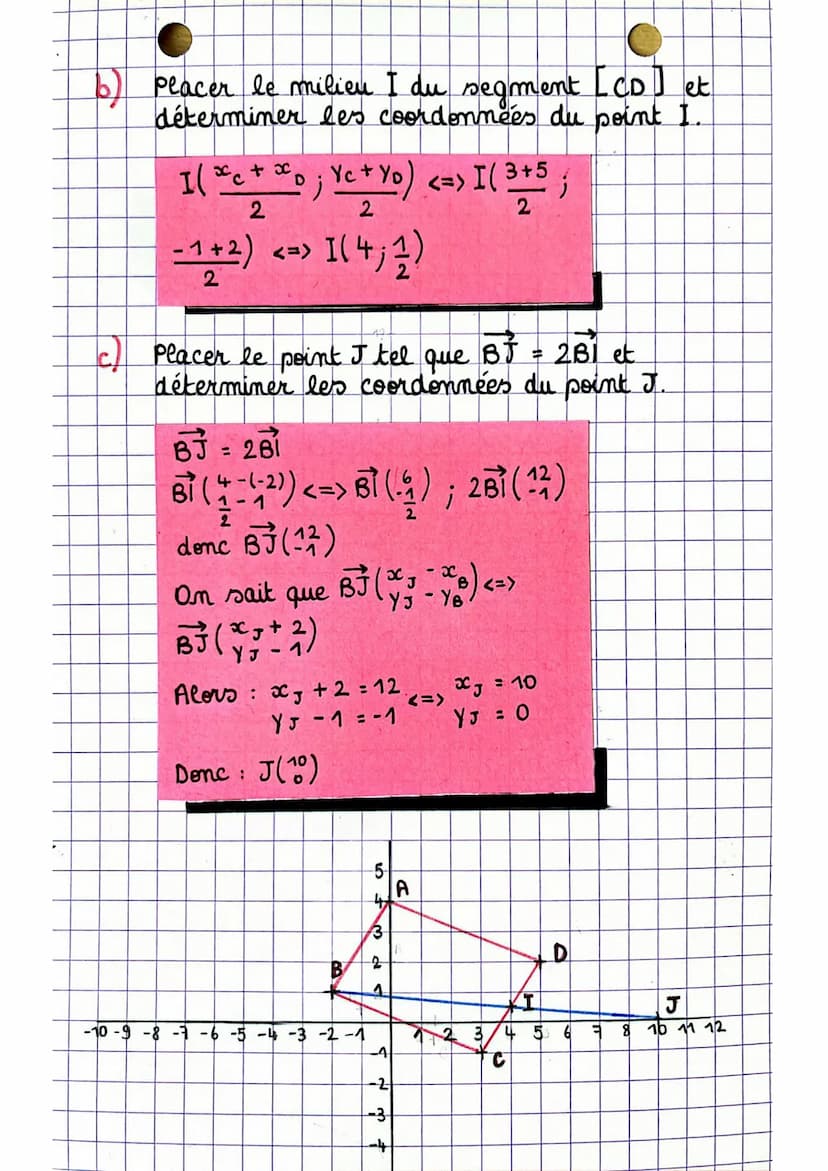 b) Placer le milieu I du segment [CD] et
déterminer les coordonnées du point I.
I( (x_C + x_D)/2 ; (y_C + y_D)/2 ) <=> I( (3+5)/2 ;
(-1+2)/2 ) <=> I(4 ; 1/2)
c) Placer le point J tel que BJ→ = 2BI→ et
déterminer les coordonnées du point J.
BJ→ = 2BI→
BI→ (4 - (-2) ; 1/2 - 1) <=> BI→ (6 ; -1/2) ; 2BI→ (12 ; -1)
donc BJ→ (12 ; -1)
On sait que BJ→ (x_J - x_B ; y_J - y_B) <=>
BJ→ (x_J + 2 ; y_J - 1)
Alors : x_J + 2 = 12 <=> x_J = 10
y_J - 1 = -1 y_J = 0
Donc : J(10 ; 0)
5
A
4
3
D
B
2
1
I
J
-10 -9 -8 -7 -6 -5 -4 -3 -2 -1 1 2 3 4 5 6 7 8 10 11 12
-1
C
-2
-3
-4